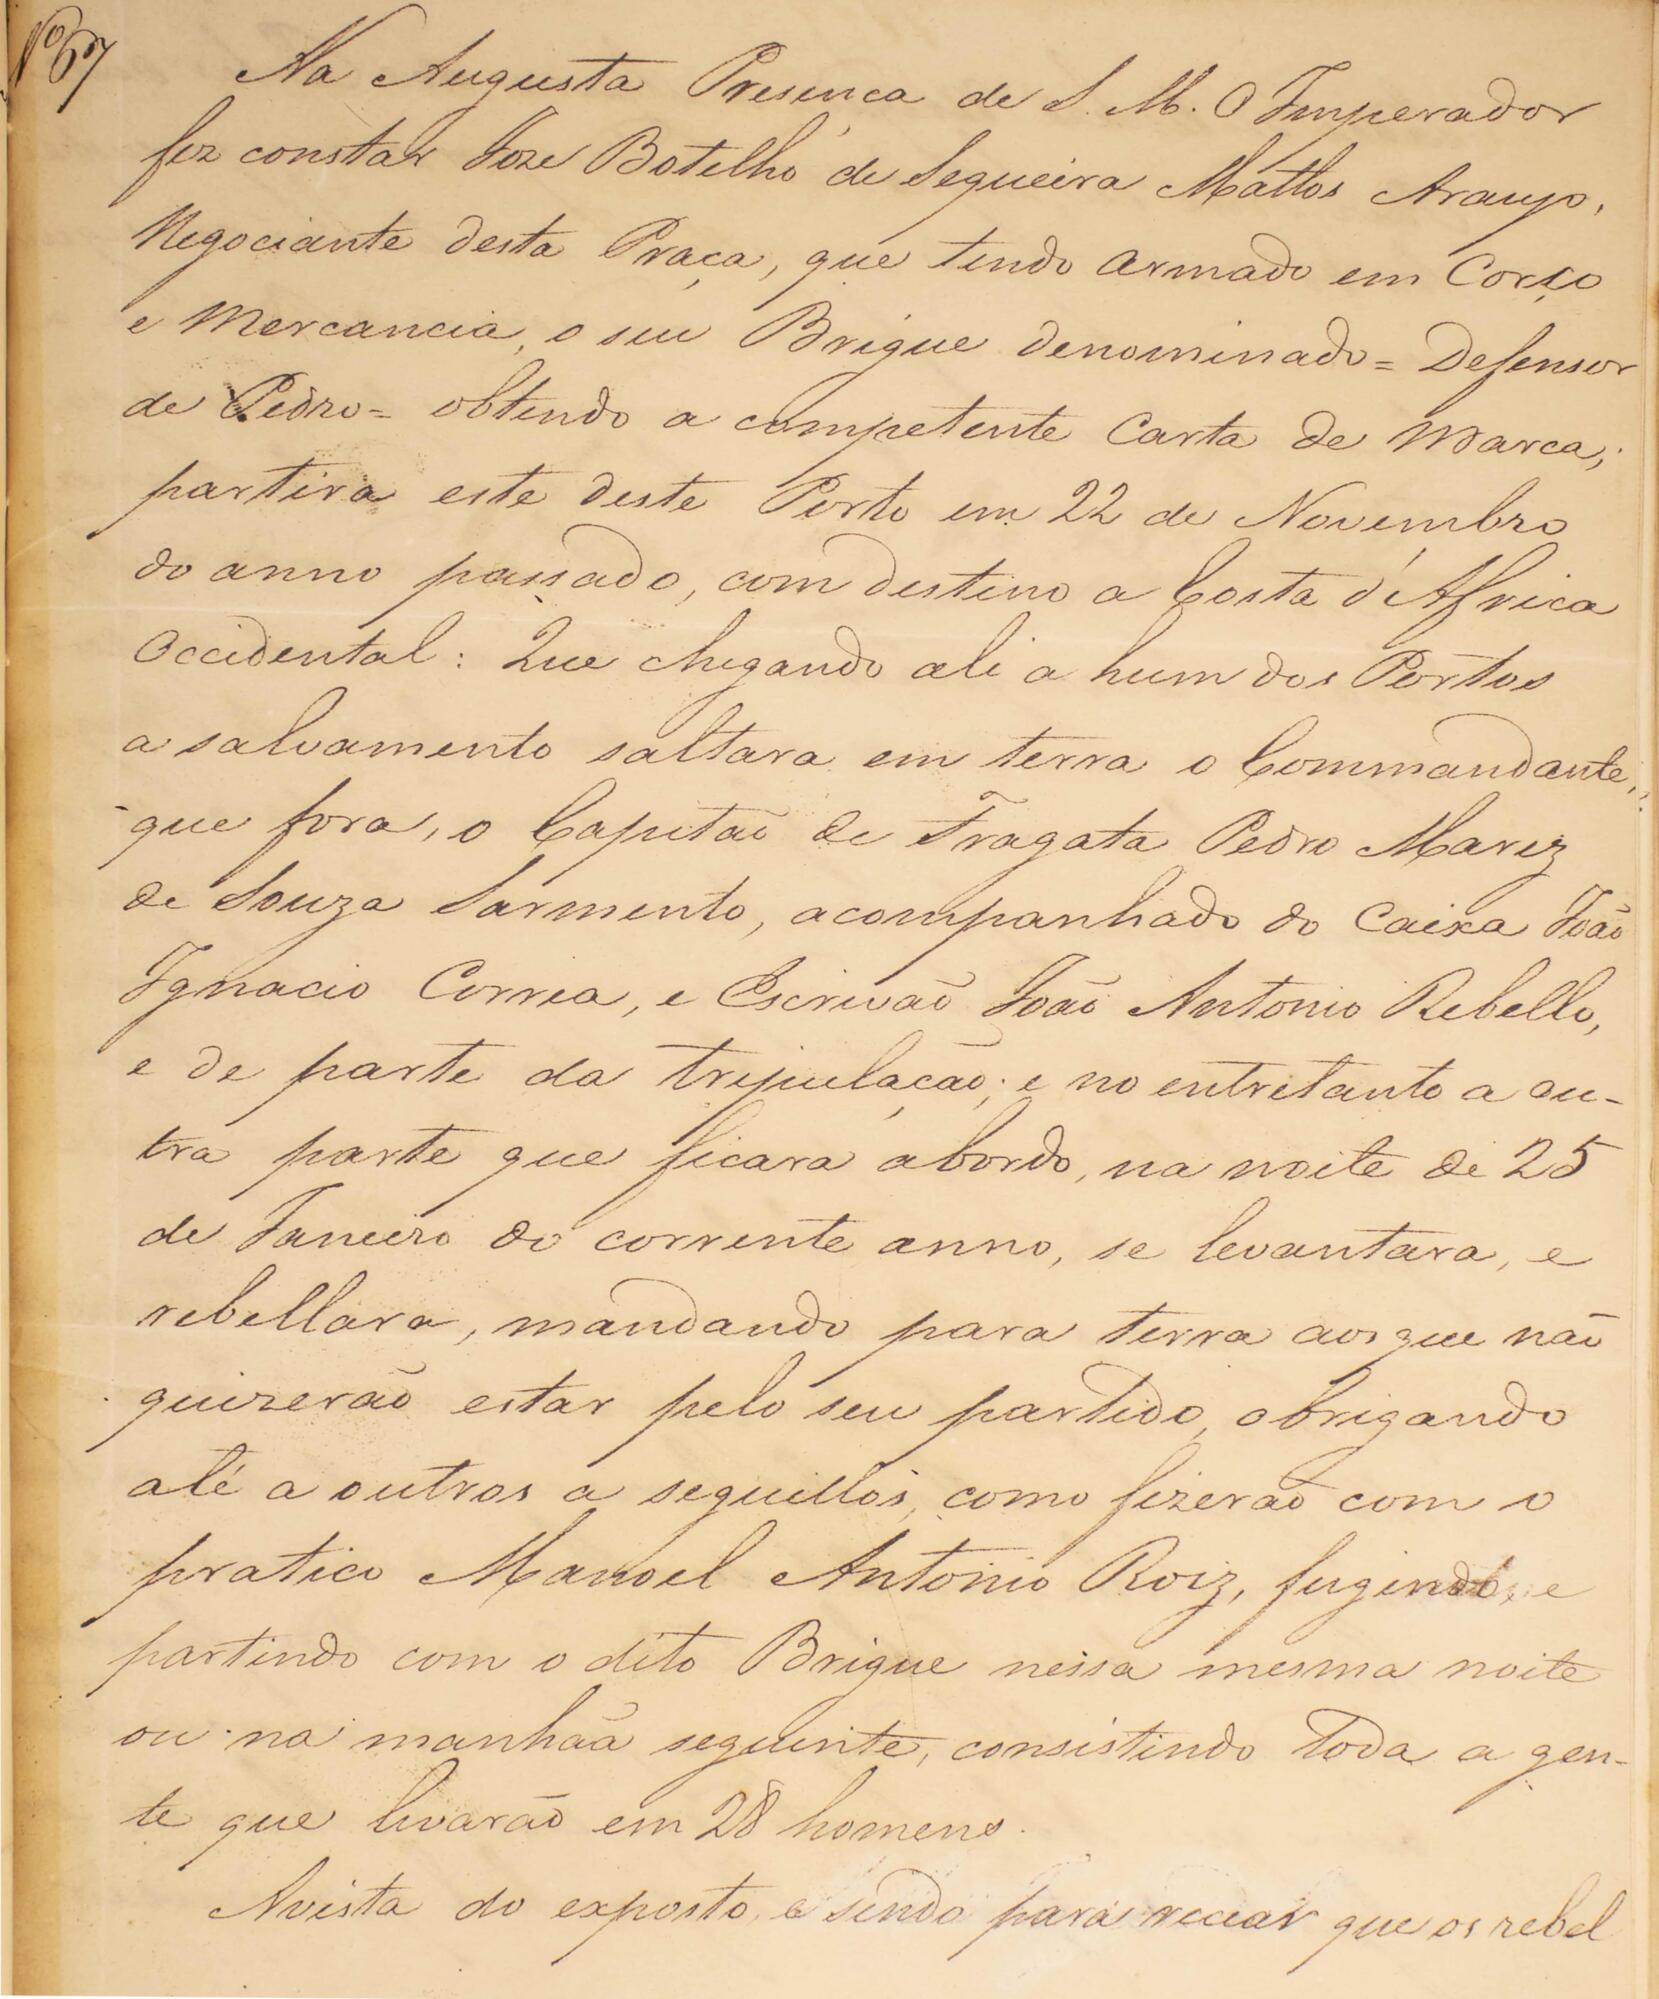 Nº 67
Na Augusta Presença de S. M. O Imperador
fez constar Joze Botelho de Sequeira Mattos Araujo,
Negociante desta Praça, que tendo armado em Corço
e Mercancia, o seu Brigue denominado = Defensor
de Pedro = obtendo a competente Carta de Marca;
partira este deste Porto em 22 de Novembro
do anno passado, com destino a Costa d'Africa
Occidental: Que chegando ali a hum dos Portos
a salvamento saltara em terra o Commandante,
que fora, o Capitaõ de Fragata Pedro Mariz
de Souza Sarmento, acompanhado do Caixa João
Ignacio Correa, e Escrivão João Antonio Rebello,
e de parte da tripulação; e no entretanto a ou-
tra parte que ficara abordo, na noite de 25
de Janeiro do corrente anno, se levantara, e
rebellara, mandando para terra aos que não
quizerão estar pelo seu partido, obrigando
até a outros a seguillos, como fizerão com o
pratico Manoel Antonio Roiz, fugindo, e
partindo com o dito Brigue nessa mesma noite
ou na manhãa seguinte, consistindo toda a gen-
te que levarão em 28 homens.
Avista do exposto, e sendo para recear que os rebel